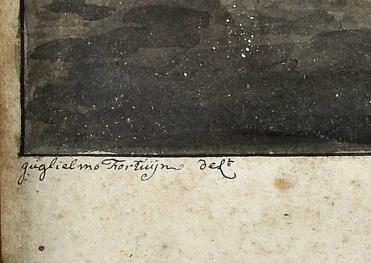 guglielmo Fortuijn delt